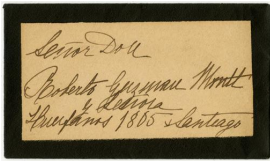 Señor Don
Roberto Guzman Montt
y Señora
Huerfanos 1805 Santiago